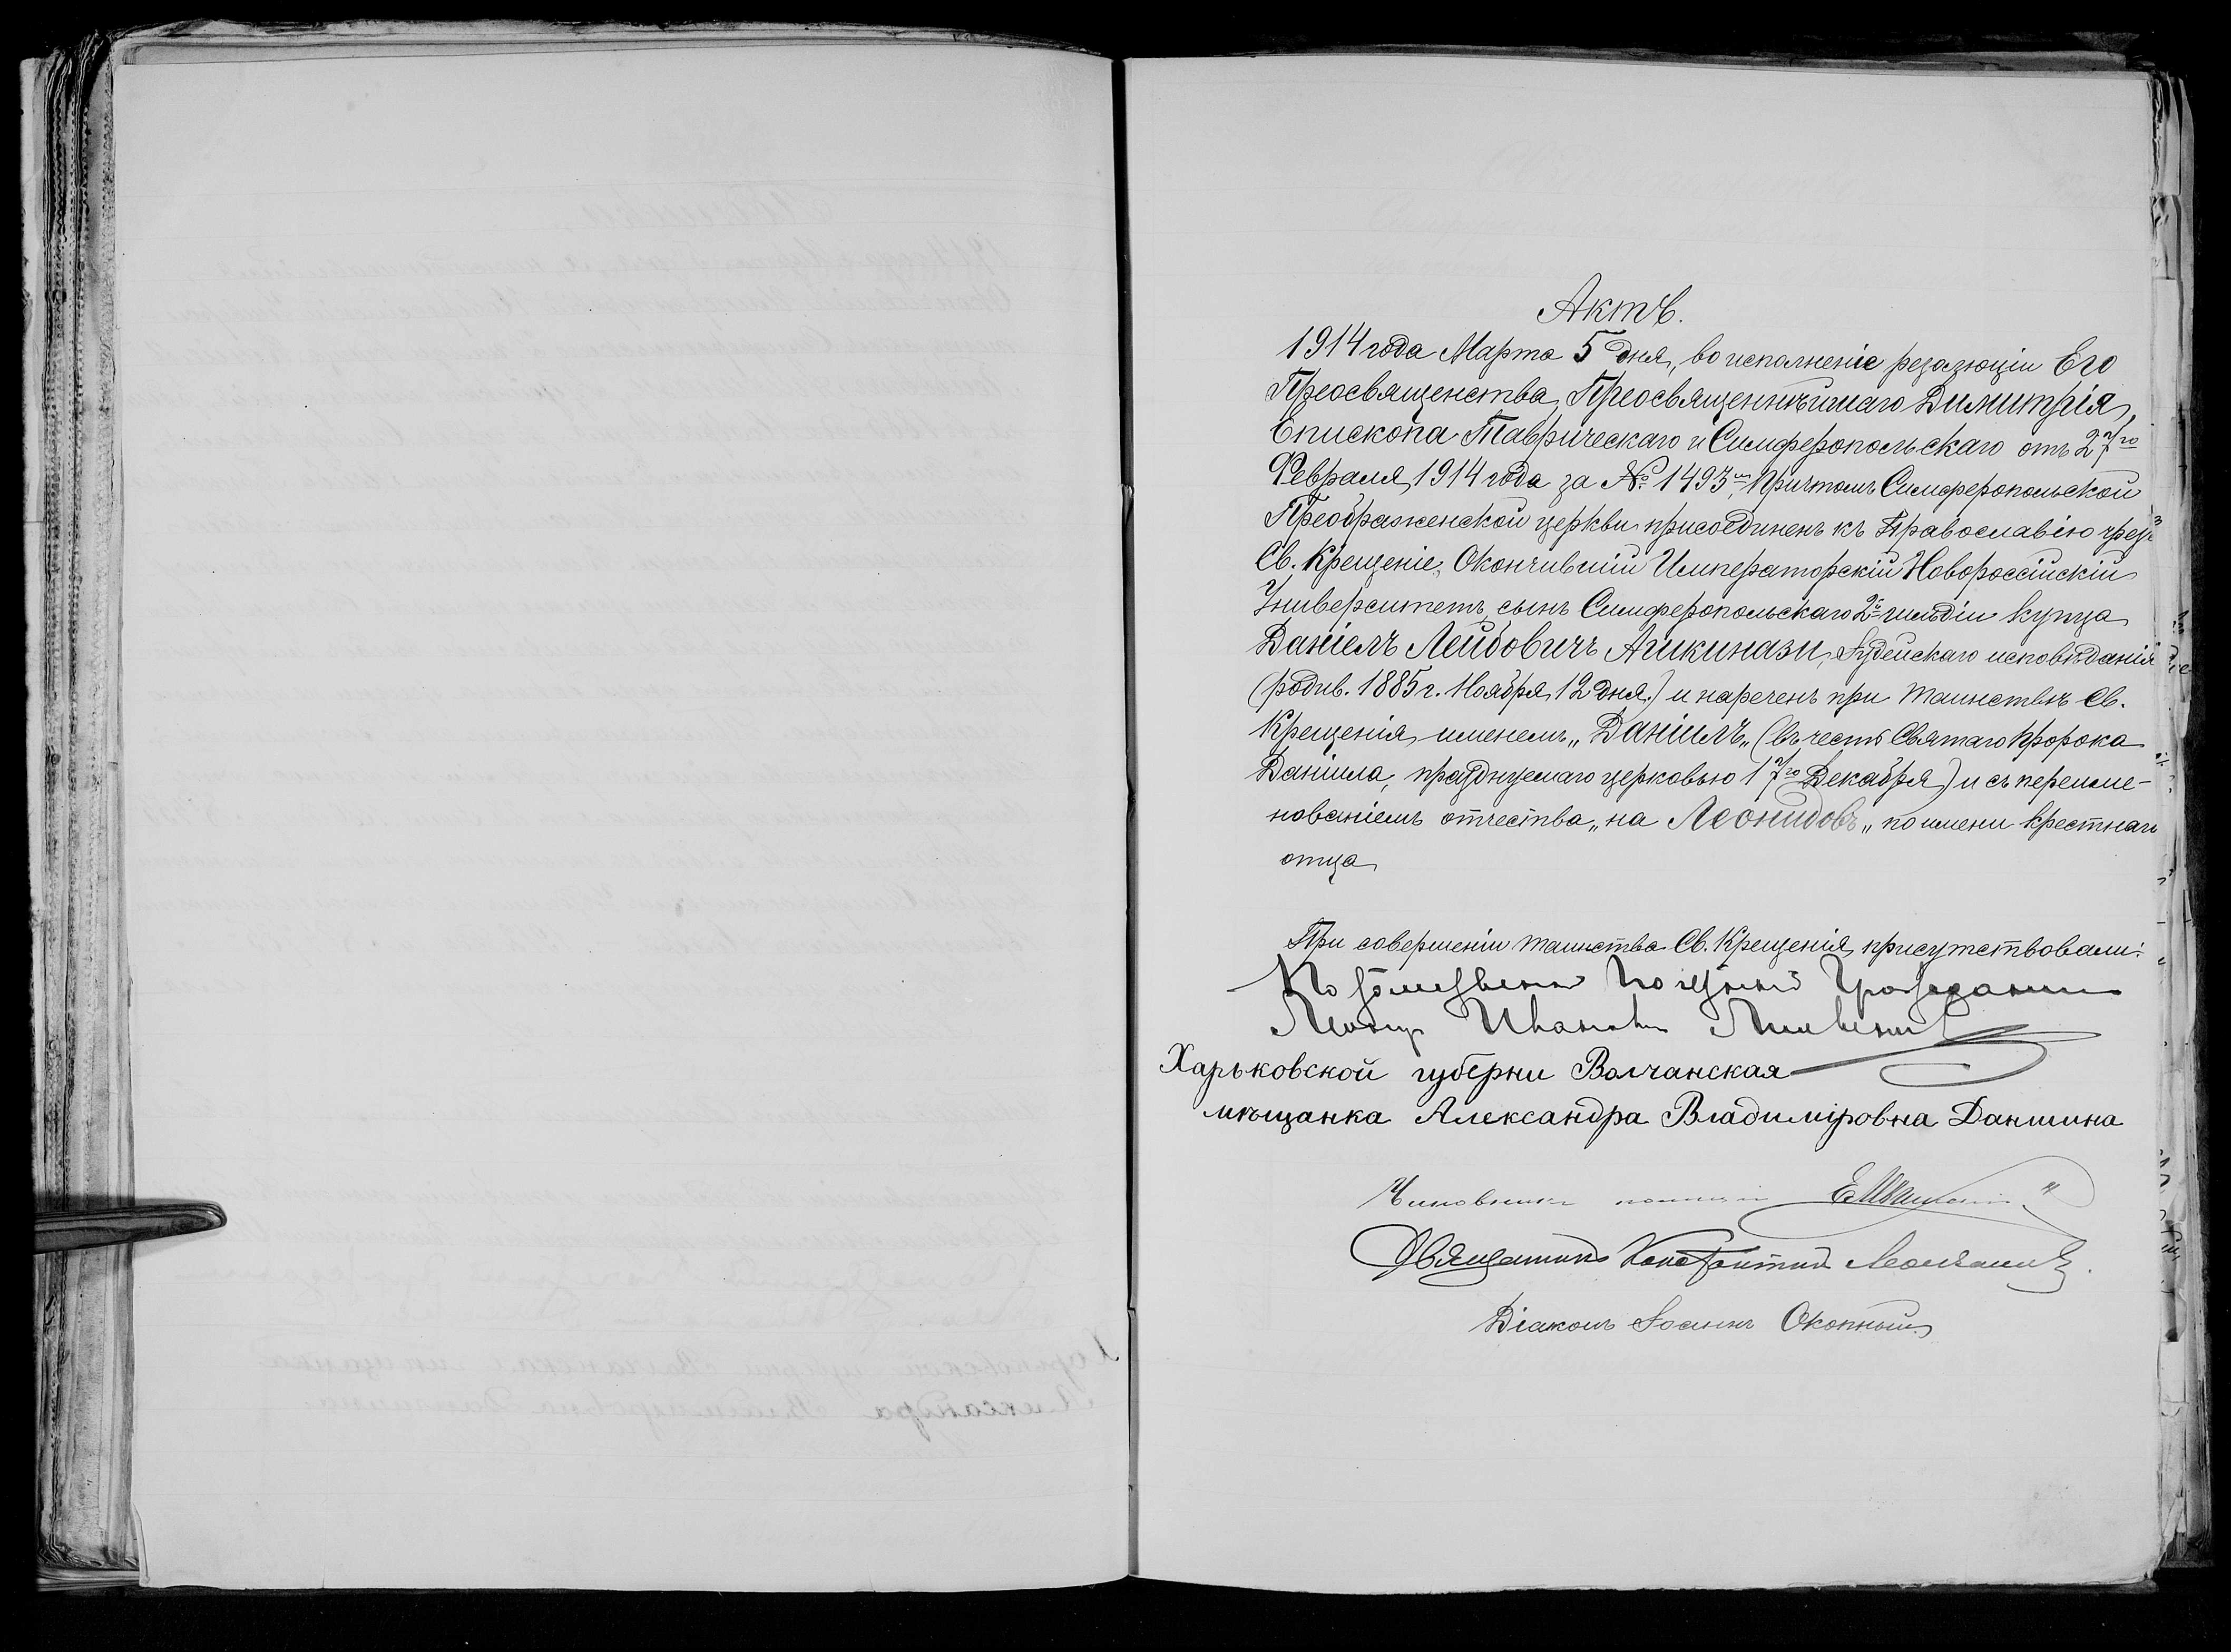 Актъ.
1914 года Марта 5 дня, во исполненіе резолюціи Его
Преосвященства, Преосвященнѣйшаго Димитрія,
Епископа Таврическаго и Симферопольскаго отъ 27го
Февраля 1914 года за № 1493мъ, Причтомъ Симферопольской
Преображенской церкви присоединенъ къ Православію чрезъ
Св. Крещеніе, Окончившій Императорскій Новороссійскій
Университетъ, сынъ Симферопольскаго 2й гильдіи купца
Даніелъ Лейбовичъ Ашкинази, Іудейскаго исповѣданія
(родив. 1885 г. Ноября 12 дня.) и нареченъ при таинствѣ Св.
Крещенія именемъ „Даніилъ„ (въ честь Святаго Пророка
Даніила, празднуемаго церковью 17го Декабря) и съ переиме-
нованіемъ отчества „на Леонидовъ„ по имени крестнаго
отца
При совершеніи таинства Св. Крещенія присутствовали:
Потомственный Почетный Гражданинъ
Леонидъ Ивановичъ
Харьковской губерни Волчанская
мѣщанка Александра Владиміровна Даншина
Чиновникъ полиціи
Священникъ Константинъ
Діаконъ Іоаннъ Окопный